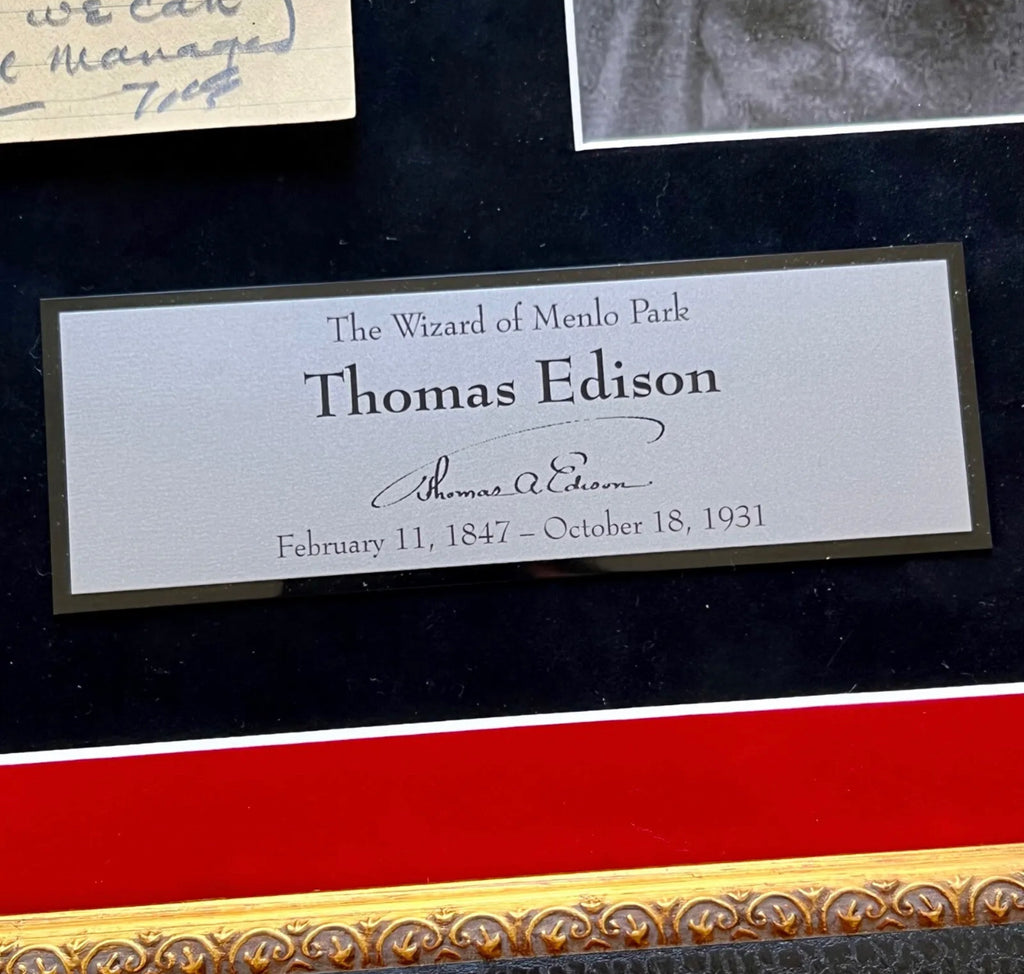 we can
manager
The Wizard of Menlo Park
Thomas Edison
Thomas A. Edison
February 11, 1847 – October 18, 1931